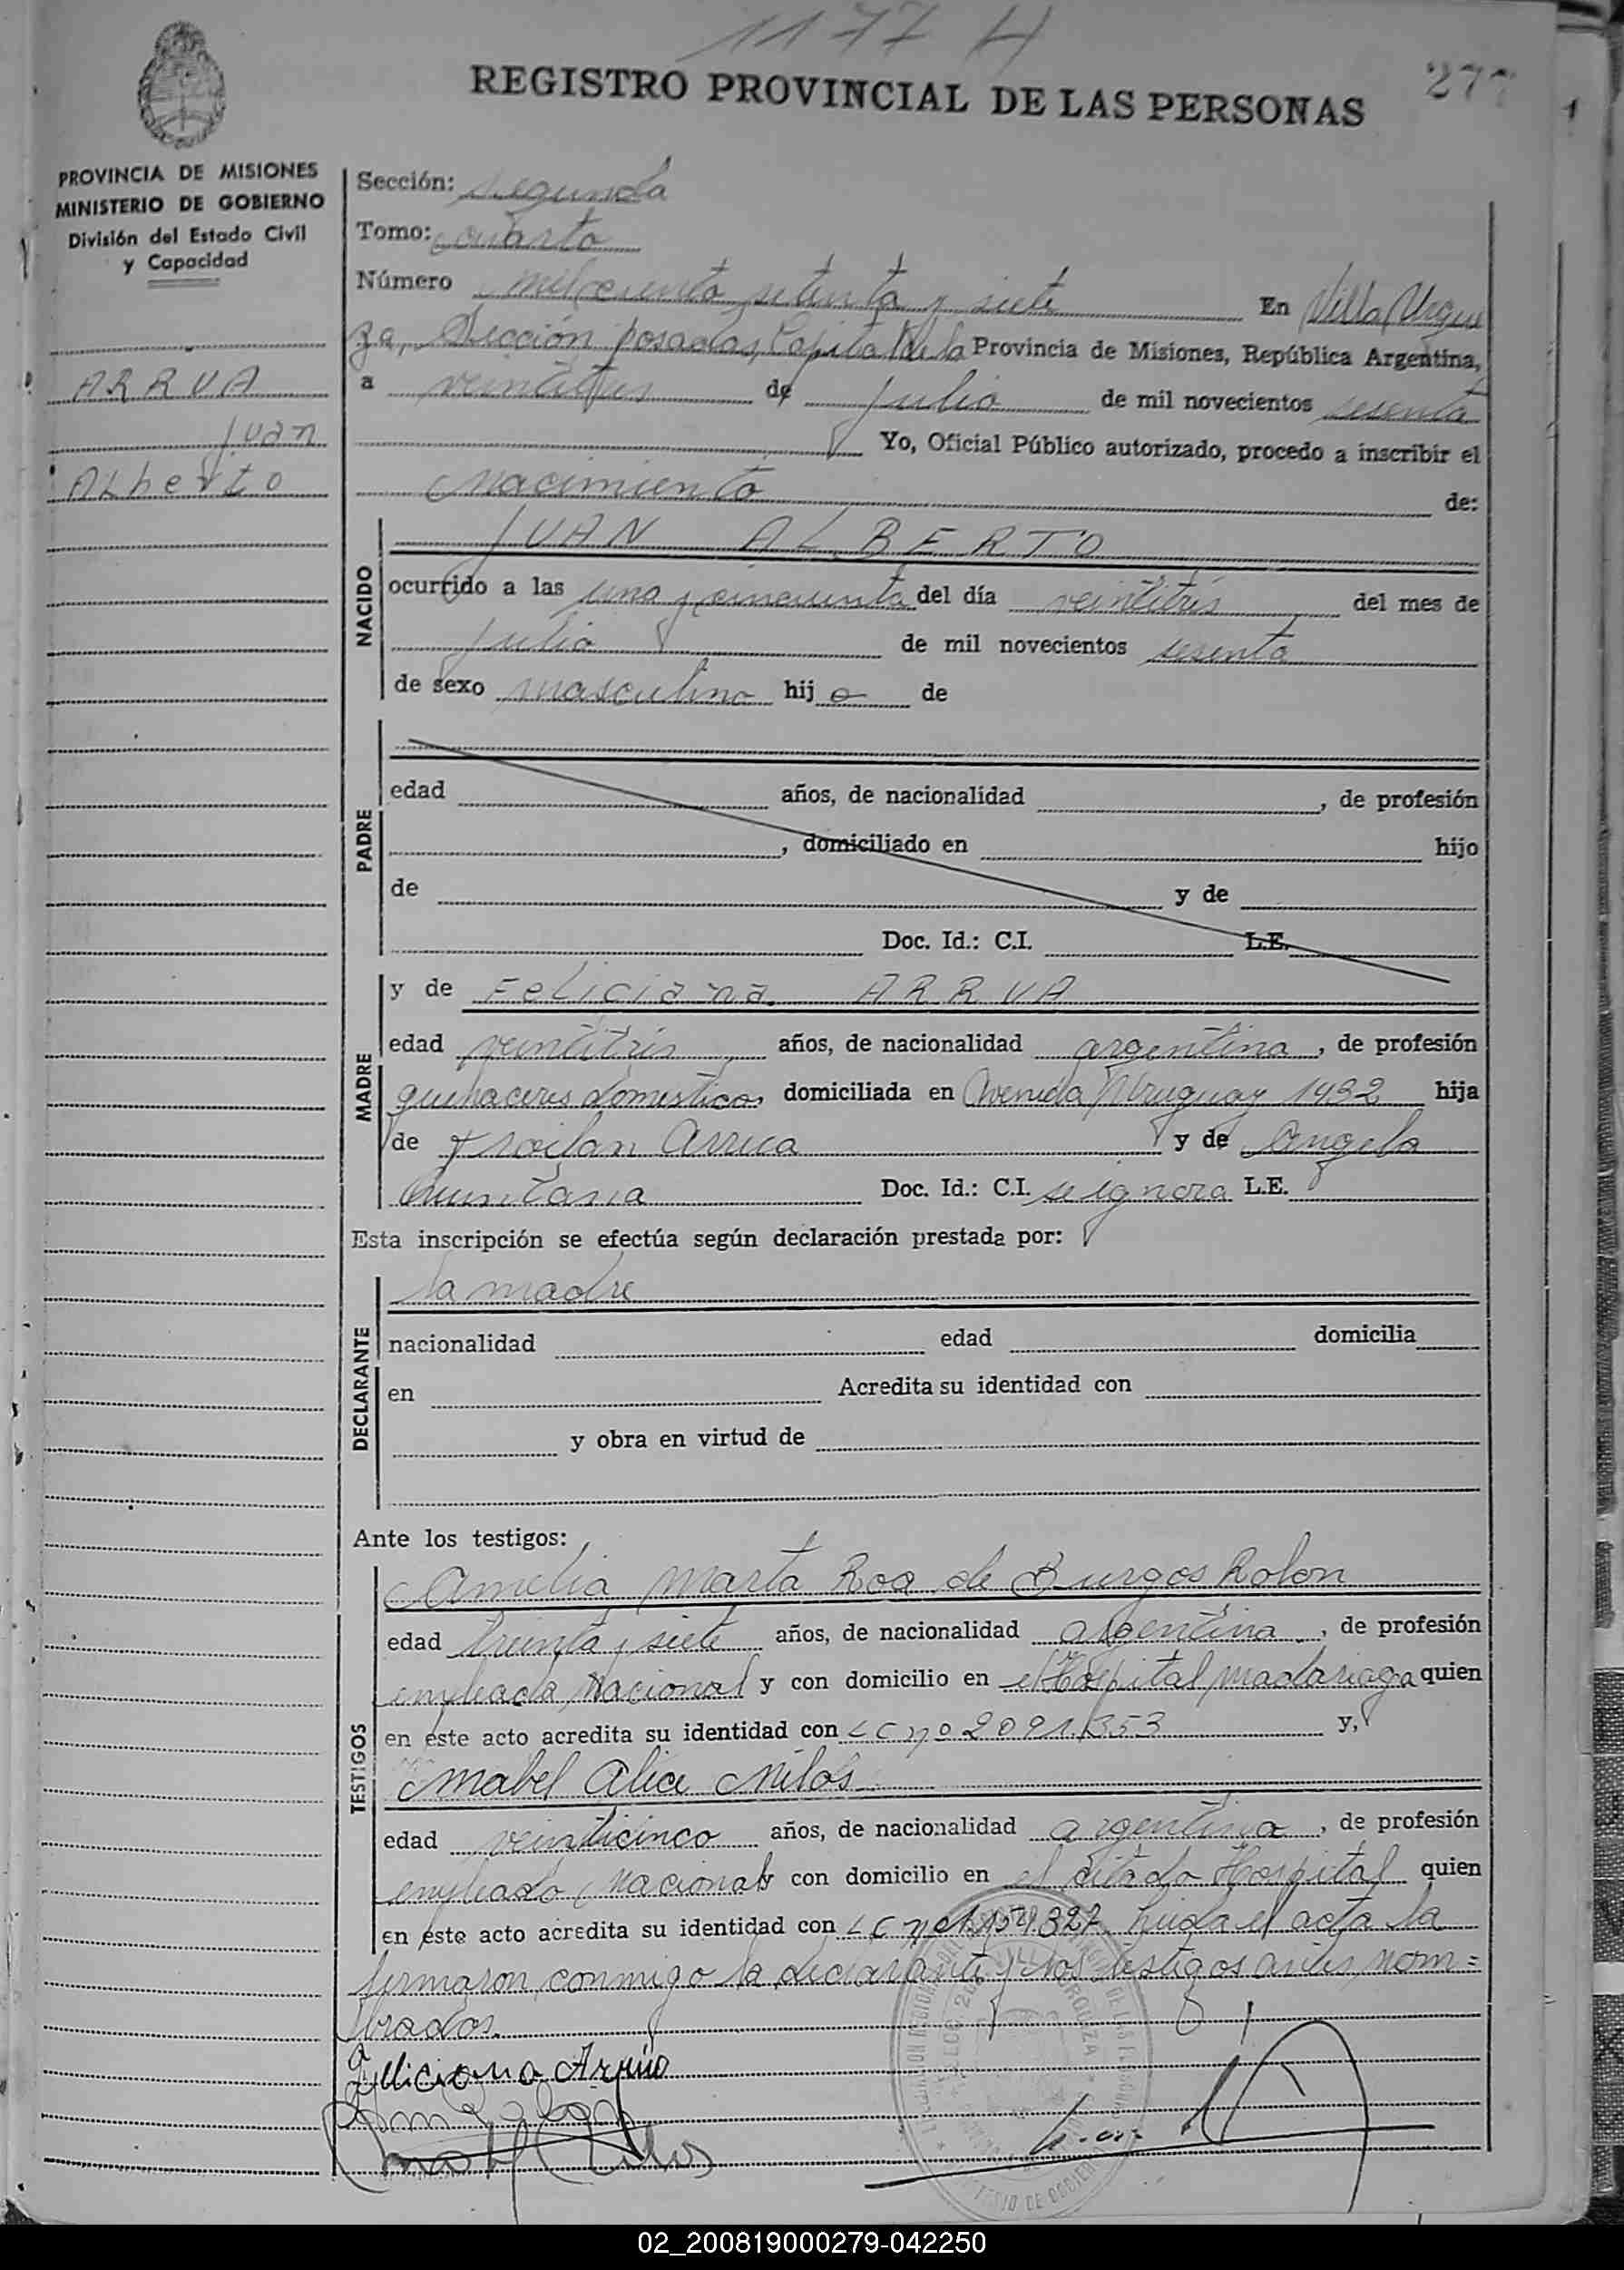 1177 H
277
REGISTRO PROVINCIAL DE LAS PERSONAS
1
PROVINCIA DE MISIONES
MINISTERIO DE GOBIERNO
División del Estado Civil
y Capacidad
ARRUA
Juan
Alberto
Sección: segunda
Tomo: cuarto
Número mil ciento setenta y siete En Villa Urqui
za, Sección posadas, Capital de la Provincia de Misiones, República Argentina,
a veintitres de julio de mil novecientos sesenta
Yo, Oficial Público autorizado, procedo a inscribir el
nacimiento de:
NACIDO
JUAN ALBERTO
ocurrido a las una y cincuenta del día veintitrés del mes de
julio de mil novecientos sesenta
de sexo masculino hijo de
PADRE
edad años, de nacionalidad , de profesión
, domiciliado en hijo
de y de
Doc. Id.: C.I. L.E.
MADRE
y de Feliciana ARRUA
edad veintitrés años, de nacionalidad argentina, de profesión
quehaceres domesticos domiciliada en Avenida Uruguay 1432 hija
de Froilan Arrua y de Angela
Quintana Doc. Id.: C.I. se ignora L.E.
Esta inscripción se efectúa según declaración prestada por:
DECLARANTE
la madre
nacionalidad edad domicilia
en Acredita su identidad con
y obra en virtud de
Ante los testigos:
TESTIGOS
Amelia Marta Roa de Burgos Rolon
edad treinta y siete años, de nacionalidad argentina, de profesión
empleada Nacional y con domicilio en el Hospital Madariaga quien
en este acto acredita su identidad con LC nº 2091.353 y,
Mabel Alice Milos
edad veinticinco años, de nacionalidad argentina, de profesión
empleada Nacional y con domicilio en el citado Hospital quien
en este acto acredita su identidad con LC nº leida el acta la
firmaron conmigo la declarante y los testigos antes nom=
brados.
Feliciana Arrua
Mabel Milos
02_200819000279-042250